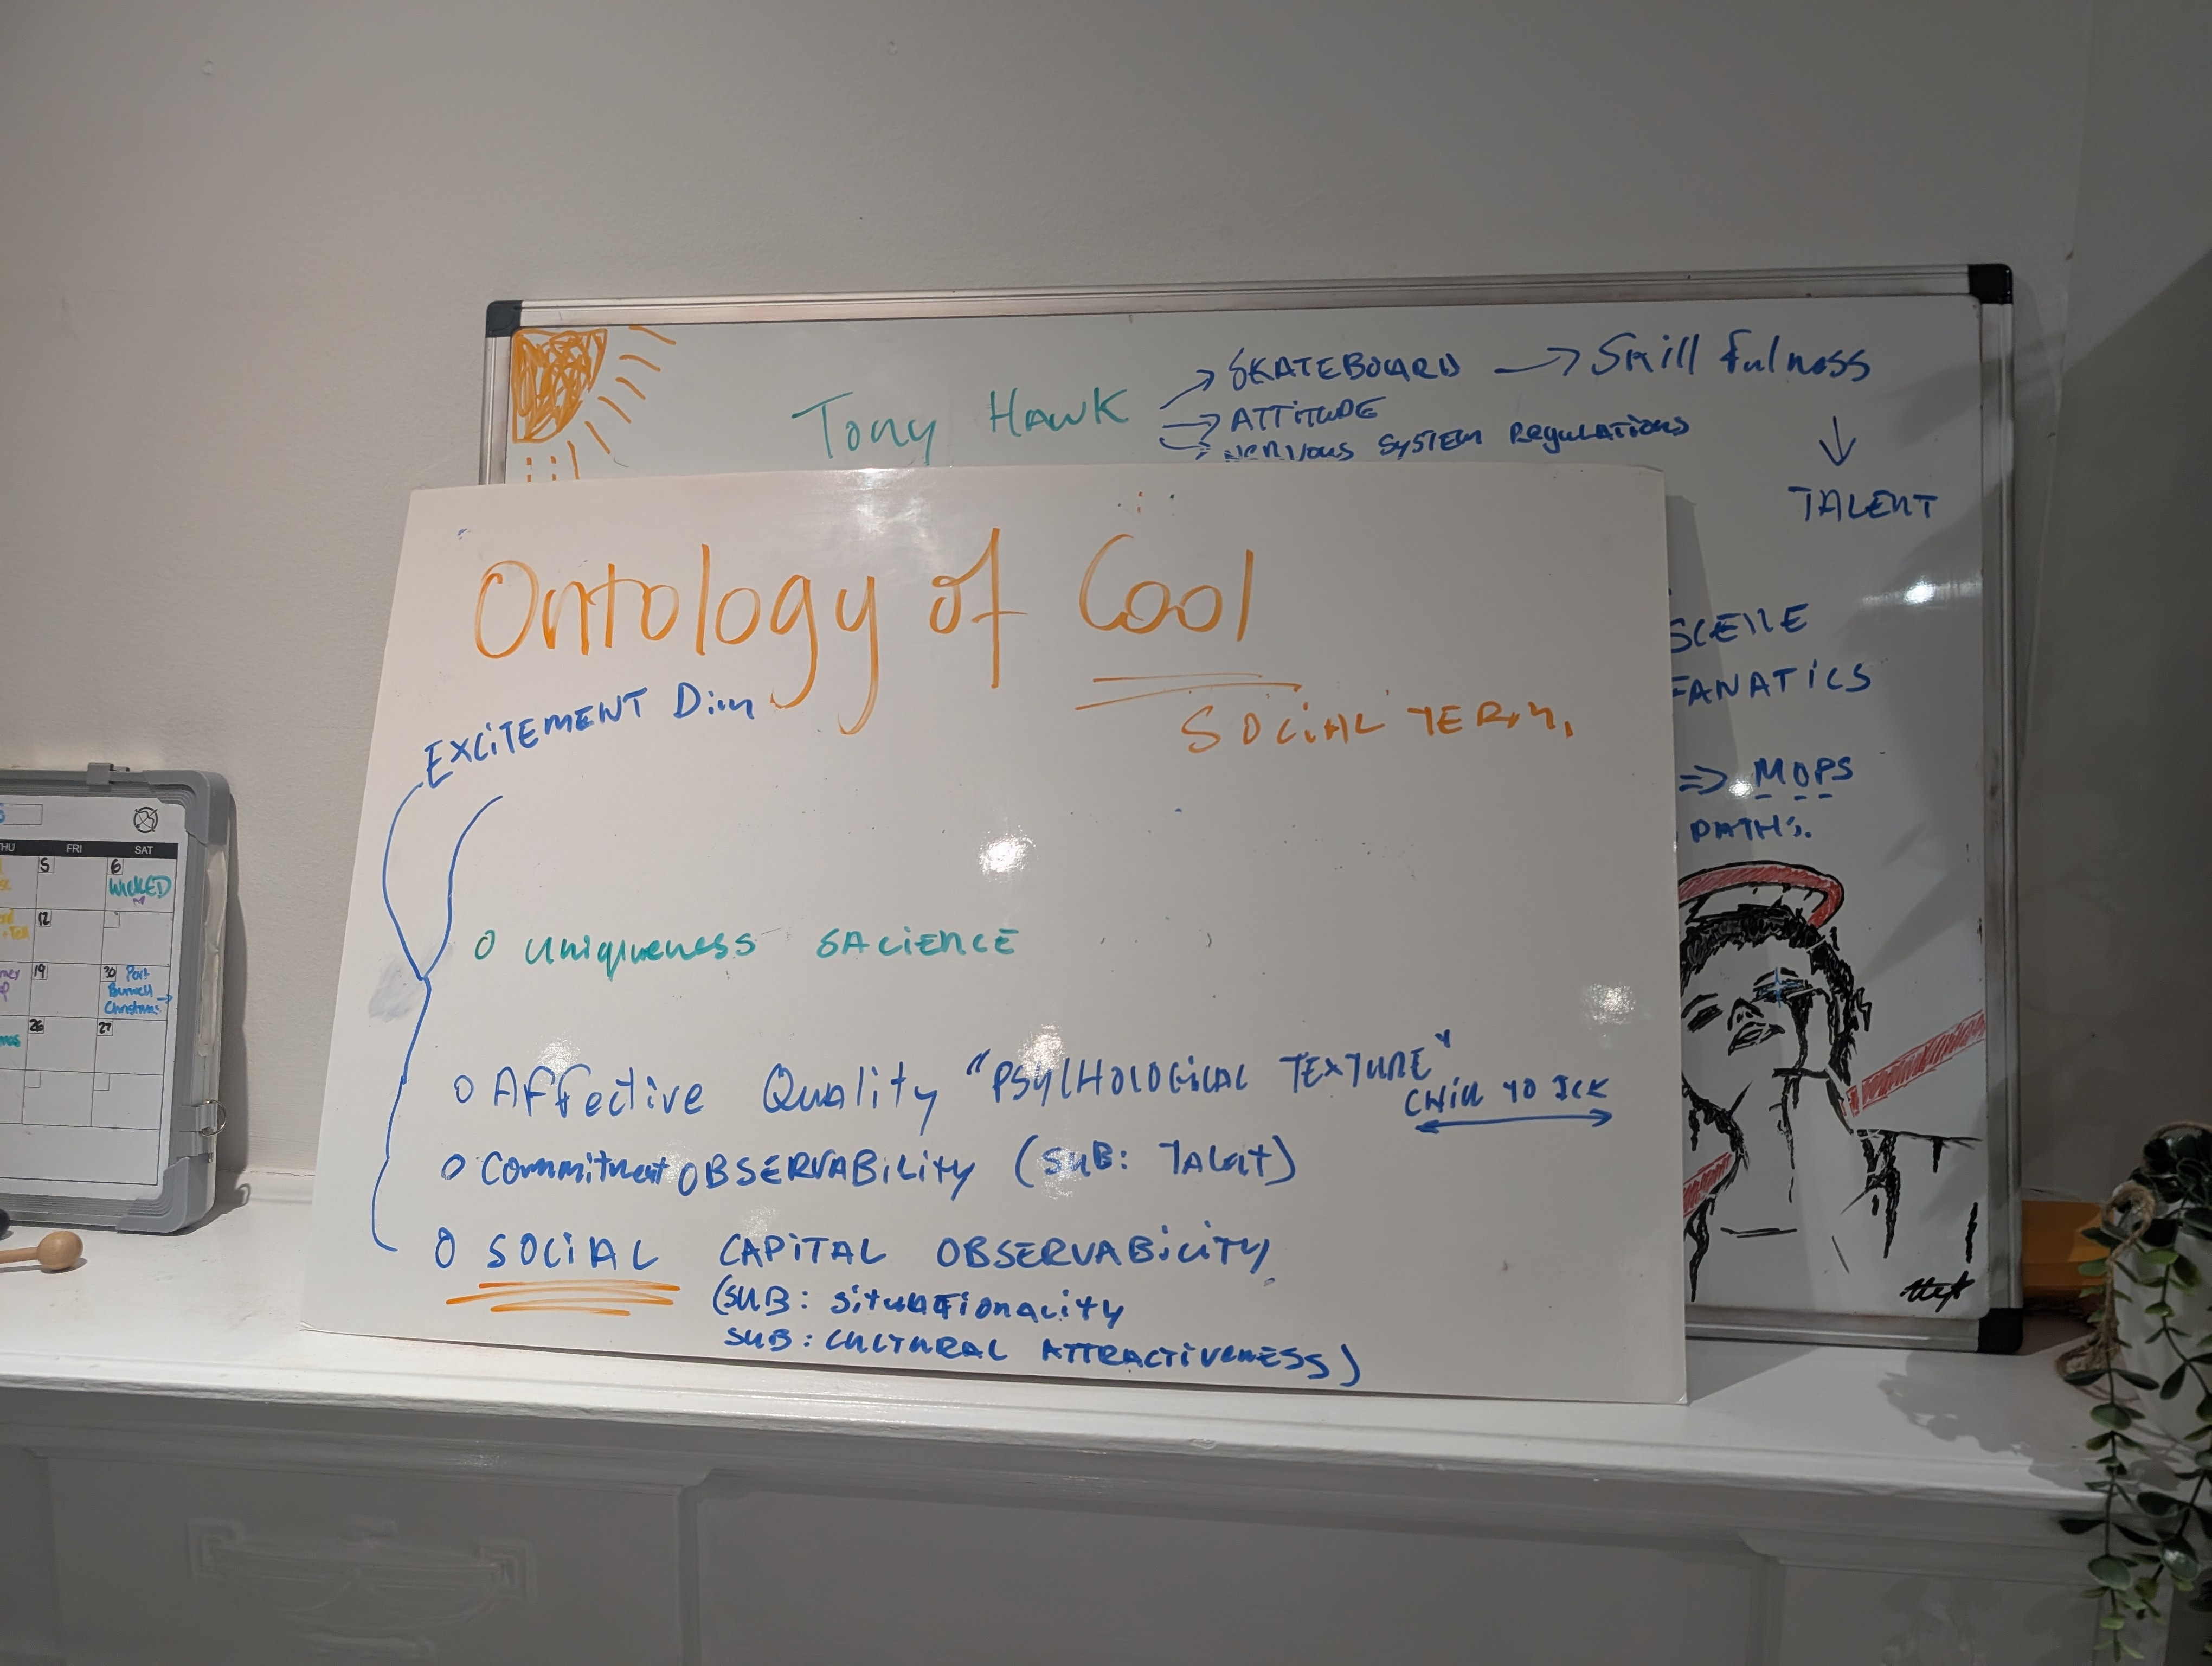 Tony Hawk → SKATEBOARD → Skill fulness
→ ATTITUDE
→ NERVOUS SYSTEM REgulATiONS
↓
TALENT
SCENE
FANATICS
⇒ MOPS
PATHS.
Ontology of Cool
SOCIAL TERM.
EXCITEMENT Dim
O uniqueness SACIENCE
O Affective Quality "PSYCHOLOGICAL TEXTURE"
CHILL TO ICK
O Commitment OBSERVABILITY (SUB: TALENT)
O SOCIAL CAPITAL OBSERVABILITY
(SUB: SITUATIONALITY
SUB: CULTURAL ATTRACTIVENESS)
THU FRI SAT
5 6
WICKED
12
19 20 Port
Burwell →
Christmas
26 27